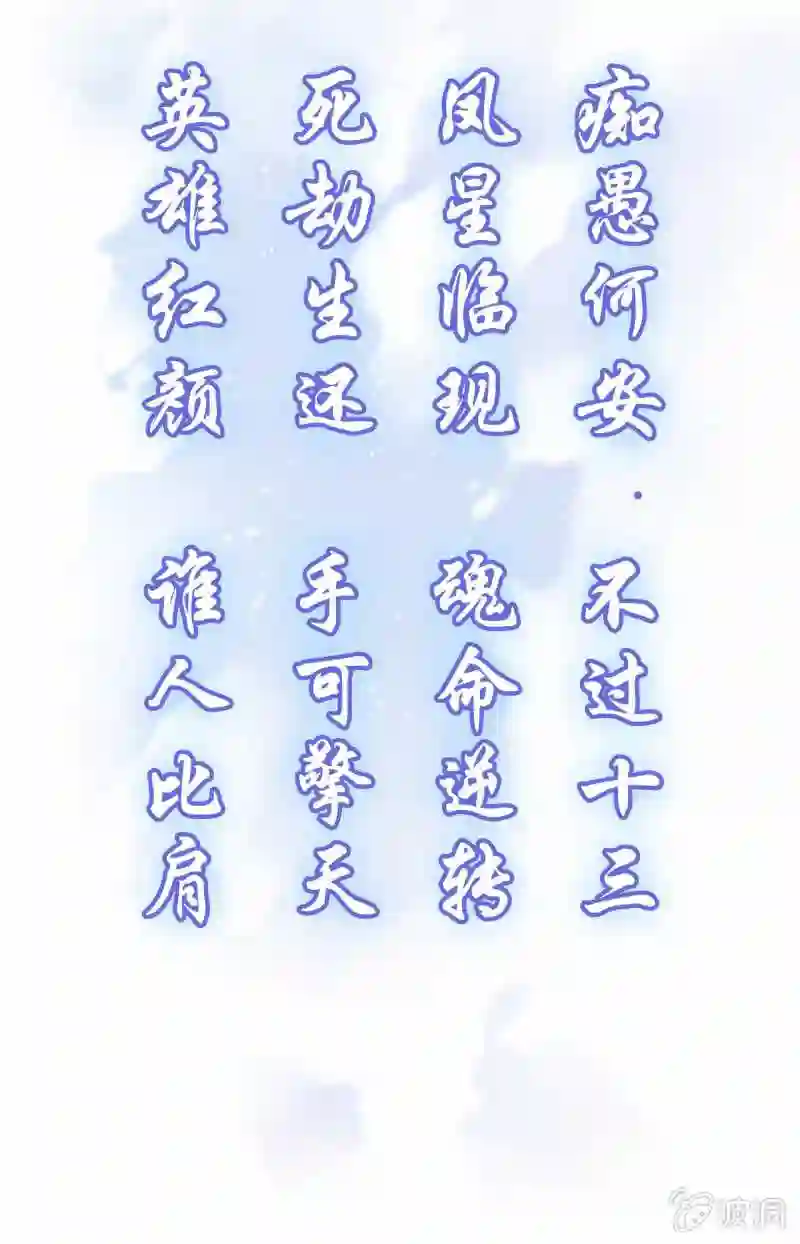 痴愚何安
不过十三
凤星临现
魂命逆转
死劫生还
手可擎天
英雄红颜
谁人比肩